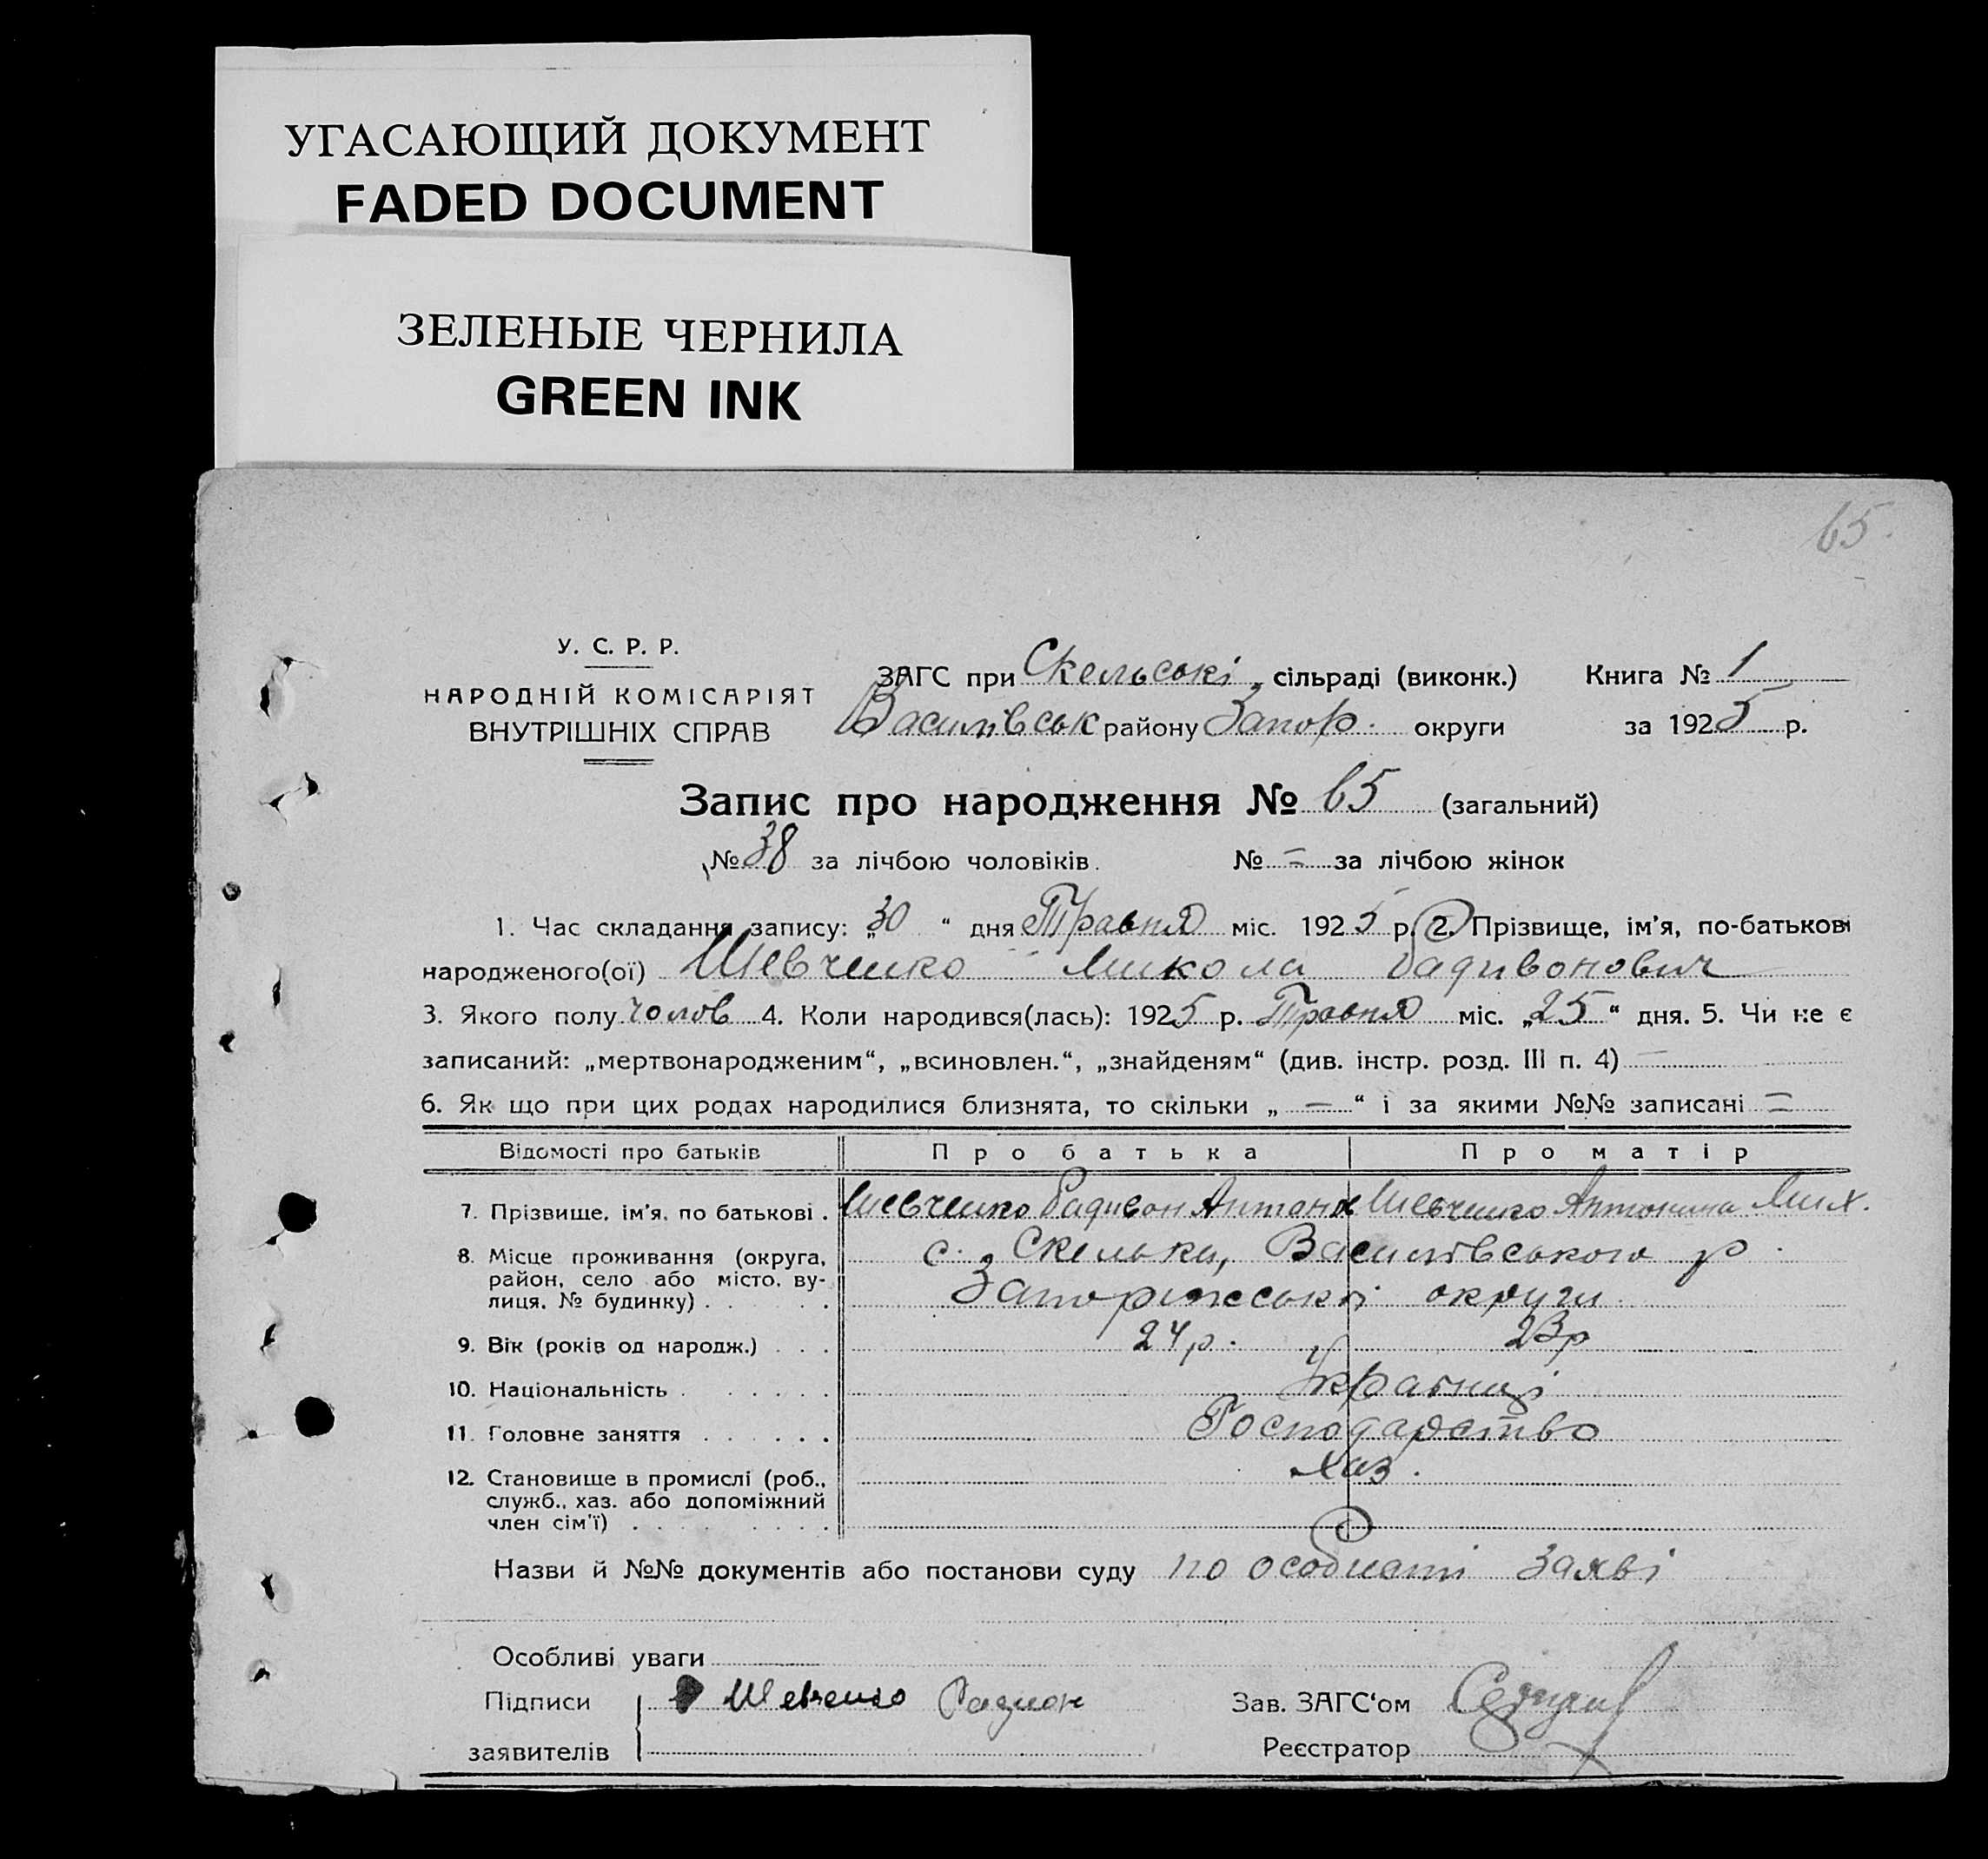 УГАСАЮЩИЙ ДОКУМЕНТ
FADED DOCUMENT
ЗЕЛЕНЫЕ ЧЕРНИЛА
GREEN INK
65.
У. С. Р. Р.
НАРОДНІЙ КОМІСАРІЯТ
ВНУТРІШНІХ СПРАВ
ЗАГС при Скельські сільраді (виконк.) Книга № 1
Василівськ району Запор. округи за 1925 р.
Запис про народження № 65 (загальний)
№ 38 за лічбою чоловіків. № = за лічбою жінок
1. Час складання запису: „30 “ дня Травня міс. 1925 р. 2. Прізвище, ім'я, по-батькові
народженого(ої) Шевченко Микола Радивонович
3. Якого полу чолов 4. Коли народився(лась): 1925 р. Травня міс. „25“ дня. 5. Чи не є
записаний: „мертвонародженим“, „всиновлен.“, „знайденям“ (див. інстр. розд. III п. 4) —
6. Як що при цих родах народилися близнята, то скільки „ — “ і за якими №№ записані =
Відомості про батьків Про батька Про матір
7. Прізвище, ім'я, по батькові . Шевченко Радивон Антонов Шевченко Антонина Мих.
8. Місце проживання (округа, район, село або місто, вулиця, № будинку) . . . с. Скельки, Василівського р.
Запоріжські округи
9. Вік (років од народж.) . . . 24 р. 23 р
10. Національність . . . . . . Українці
11. Головне заняття . . . . . . Господарство
12. Становище в промислі (роб., служб., хаз. або допоміжний член сім'ї) . . . . . . . . Хаз.
Назви й №№ документів або постанови суду по особисті заяві
Особливі уваги
Підписи Шевченко Радион Зав. ЗАГС'ом
заявителів Реєстратор